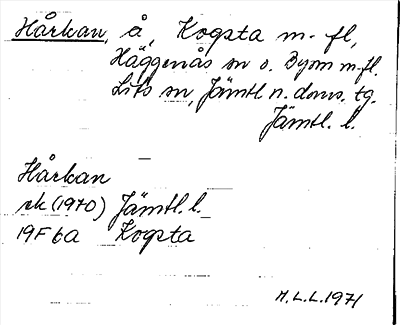 Hårkan, å, Kogsta m. fl,
Häggenås sn o. Byom m.fl.
Lits sn, Jämtl n. doms. tg.
Jämtl. l.
Hårkan
ek (1970) Jämtl. l.
19F6a Kogsta
M.L.L. 1971